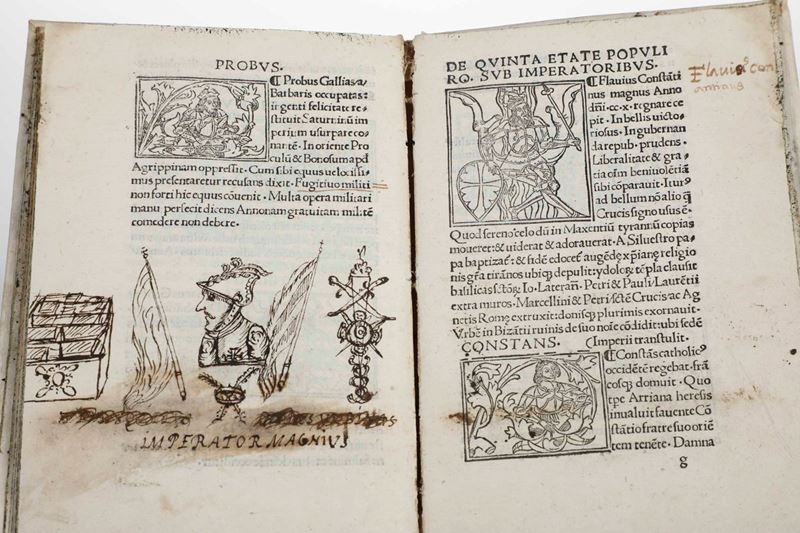 PROBVS.
¶ Probus Gallias a
Barbaris occupatas:
irgenti felicitate re-
stituit Saturninū im
perium usurpare co-
nartē. In oriente Pro
culū & Bonosum apd
Agrippinam oppressit. Cum sibi equus velocissi-
mus presentaretur recusans dixit. Fugitiuo militi
non forti hic equus cōuenit. Multa opera militari
manu perfecit dicens Annonam gratuitam militē
comedere non debere.
IMPERATOR MAGNIVS
DE QVINTA ETATE POPVLI
RO. SVB IMPERATORIBVS.
Flavius con
¶ Flauius Constāti
nus magnus Anno
dñi.cc.x.regnare ce
pit. In bellis victo
riosus. In gubernan
da repub. prudens.
Liberalitate & gra-
tia oīm beniuolētiā
sibi cōparauit. Itur
ad bellum nō alio q̃
Crucis signo usus ē.
Quod sereno celo dū in Maxentiū tyrannū copias
moueret: & uiderat & adorauerat. A Siluestro pa-
pa baptizaf: & fidē edocef augēdę xp̃ianę religio
nis gr̃a tirānos ubiq depulit: ydolor tēpla clausit
basilicas sctor Io. Lateran. Petri & Pauli. Laurētii
extra muros. Marcellini & Petri sctē Crucis ac Ag
netis Romę extruxit: donisq plurimis exornauit.
Vrbē in Bizātii ruinis de suo noīe cōdidit: ubi sedē
CONSTANS. (Imperii transtulit.
¶ Constās catholic9
occidētē regebat. frā
cosq domuit. Quo
tpe Arriana heresis
inualuit fauente Cō
stātio fratre suo oriē
tem tenēte. Damna
g